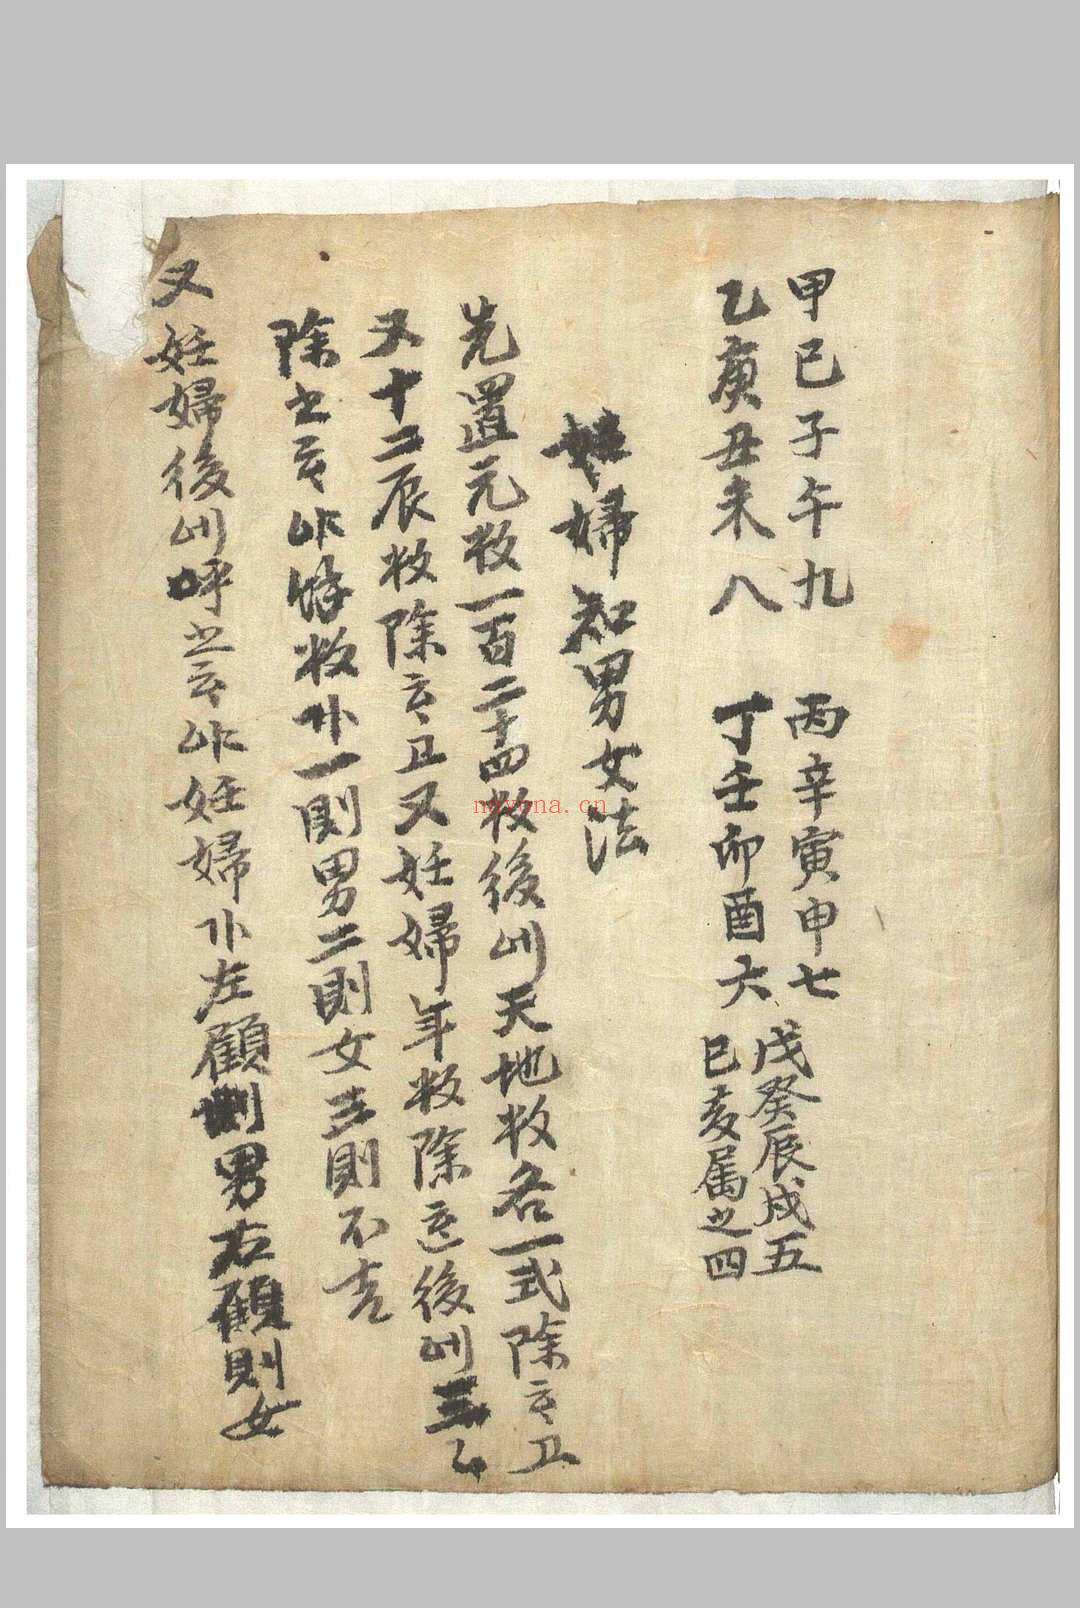 甲己子午九 丙辛寅申七 戊癸辰戌五
乙庚丑未八 丁壬卯酉六 巳亥属之四
妊婦知男女法
先置元数一百二十四数後 天地数各一式除
又十二辰数除 又妊婦年数除 後 三
除之 数 一則男二則女三則不吉
又妊婦後 呼之 妊婦 左顧則男右顧則女
nayona.cn